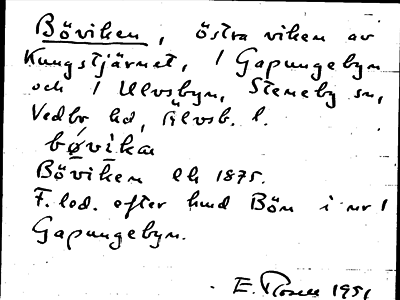 Böviken, östra viken av
Kungstjärnet, 1 Gapungebyn
och 1 Ulvsbyn, Steneby sn,
Vedbo hd, Älvsb. l.
bø̀vikan
Böviken Ek 1875.
F. led. efter hmd Bön i nr 1
Gapungebyn.
E. Rosell 1951